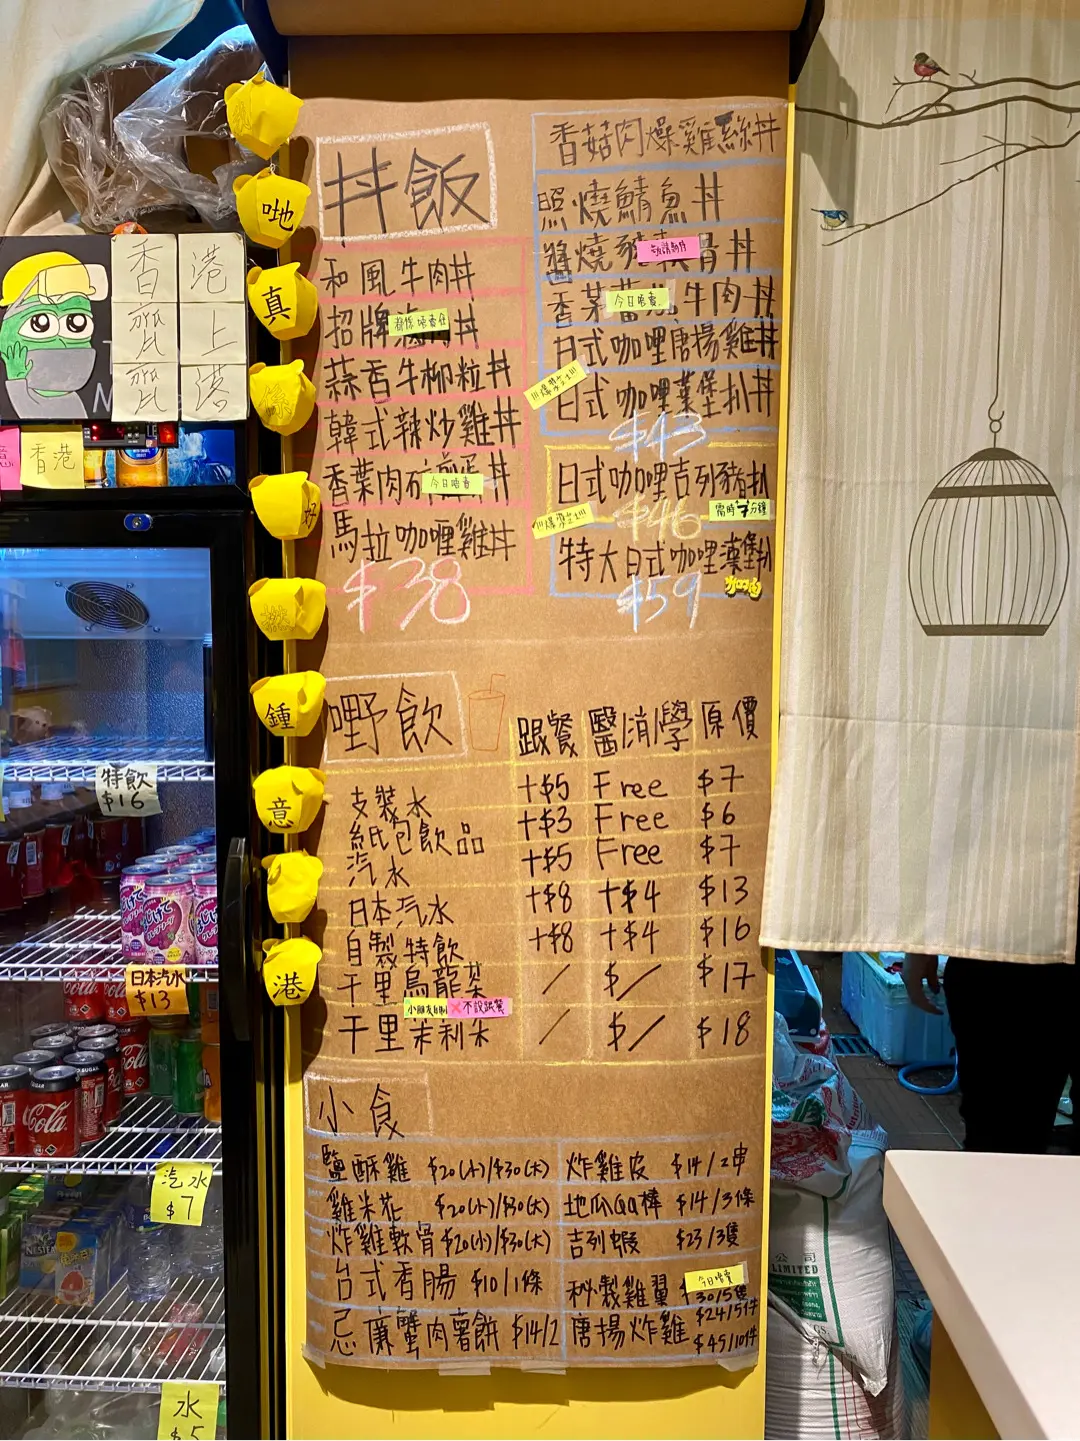 丼飯
和風牛肉丼
招牌 丼
蒜香牛柳粒丼
韓式辣炒雞丼
香葉肉碎煎蛋丼
今日唔賣
馬拉咖喱雞丼
$38
香菇肉燥雞絲丼
照燒鯖魚丼
醬燒豬軟骨丼
香茅 牛肉丼
今日唔賣
日式咖哩唐揚雞丼
日式咖哩漢堡扒丼
$43
日式咖哩吉列豬扒
$46
需時7分鐘
特大日式咖哩漢堡扒
$59
加油
嘢飲
跟餐 醫消學 原價
支裝水 +$5 Free $7
紙包飲品 +$3 Free $6
汽水 +$5 Free $7
日本汽水 +$8 +$4 $13
自製特飲 +$8 +$4 $16
千里烏龍茶 / $/ $17
不設跟餐
千里茉利茶 / $/ $18
小食
鹽酥雞 $20(小)/$30(大)
雞米花 $20(小)/$30(大)
炸雞軟骨 $20(小)/$30(大)
台式香腸 $10/1條
忌廉蟹肉薯餅 $14/2
炸雞皮 $14/2串
地瓜QQ棒 $14/3條
吉列蝦 $23/3隻
秘製雞翼 $
30/5隻
今日唔賣
唐揚炸雞 $24/5件
$45/10件
哋
真
係
好
鍾
意
港
香 港
甍 上
甍 港
香港
特飲
$16
日本汽水
$13
汽水
$7
水
$5
Coca-Cola
NESTEA
公司
LIMITED